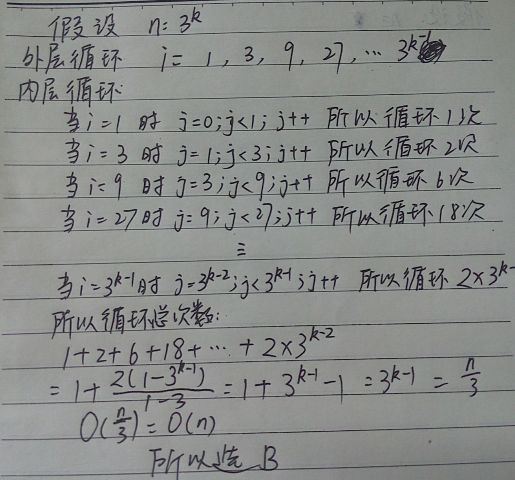 假设 n=3^k
外层循环 i= 1, 3, 9, 27, … 3^{k-1}
内层循环
当i=1时 j=0;j<1;j++ 所以循环1次
当i=3时 j=1;j<3;j++ 所以循环2次
当i=9时 j=3;j<9;j++ 所以循环6次
当i=27时 j=9;j<27;j++ 所以循环18次
⋮
当i=3^{k-1}时 j=3^{k-2};j<3^{k-1};j++ 所以循环 2×3^{k-
所以循环总次数:
1+2+6+18+…+2×3^{k-2}
=1+\frac{2(1-3^{k-1})}{1-3}=1+3^{k-1}-1=3^{k-1}=\frac{n}{3}
O(\frac{n}{3})=O(n)
所以选 B